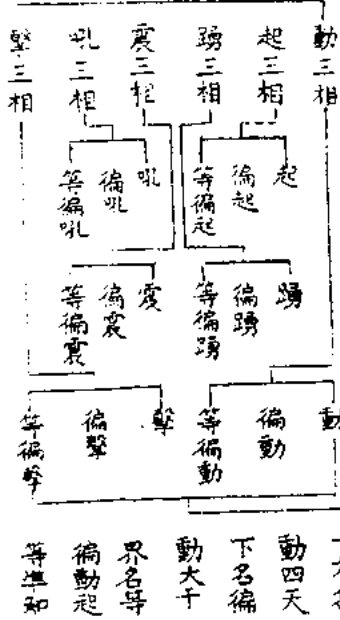 動三相
起三相
踴三相
震三相
吼三相
擊三相
起
徧起
等徧起
吼
徧吼
等徧吼
踴
徧踴
等徧踴
震
徧震
等徧震
動
徧動
等徧動
擊
徧擊
等徧擊
動四天
下名徧
動大千
界名等
徧動起
等準知